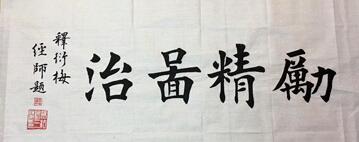 勵精啚治
釋衍梅
經師題